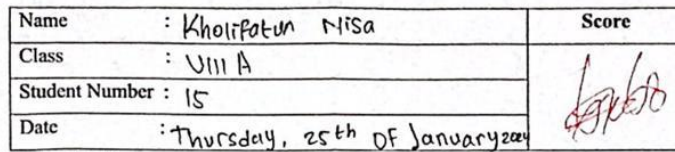 Name : Kholifatun Nisa Score
Class : VIII A
Student Number : 15
Date : Thursday, 25th OF January 2024